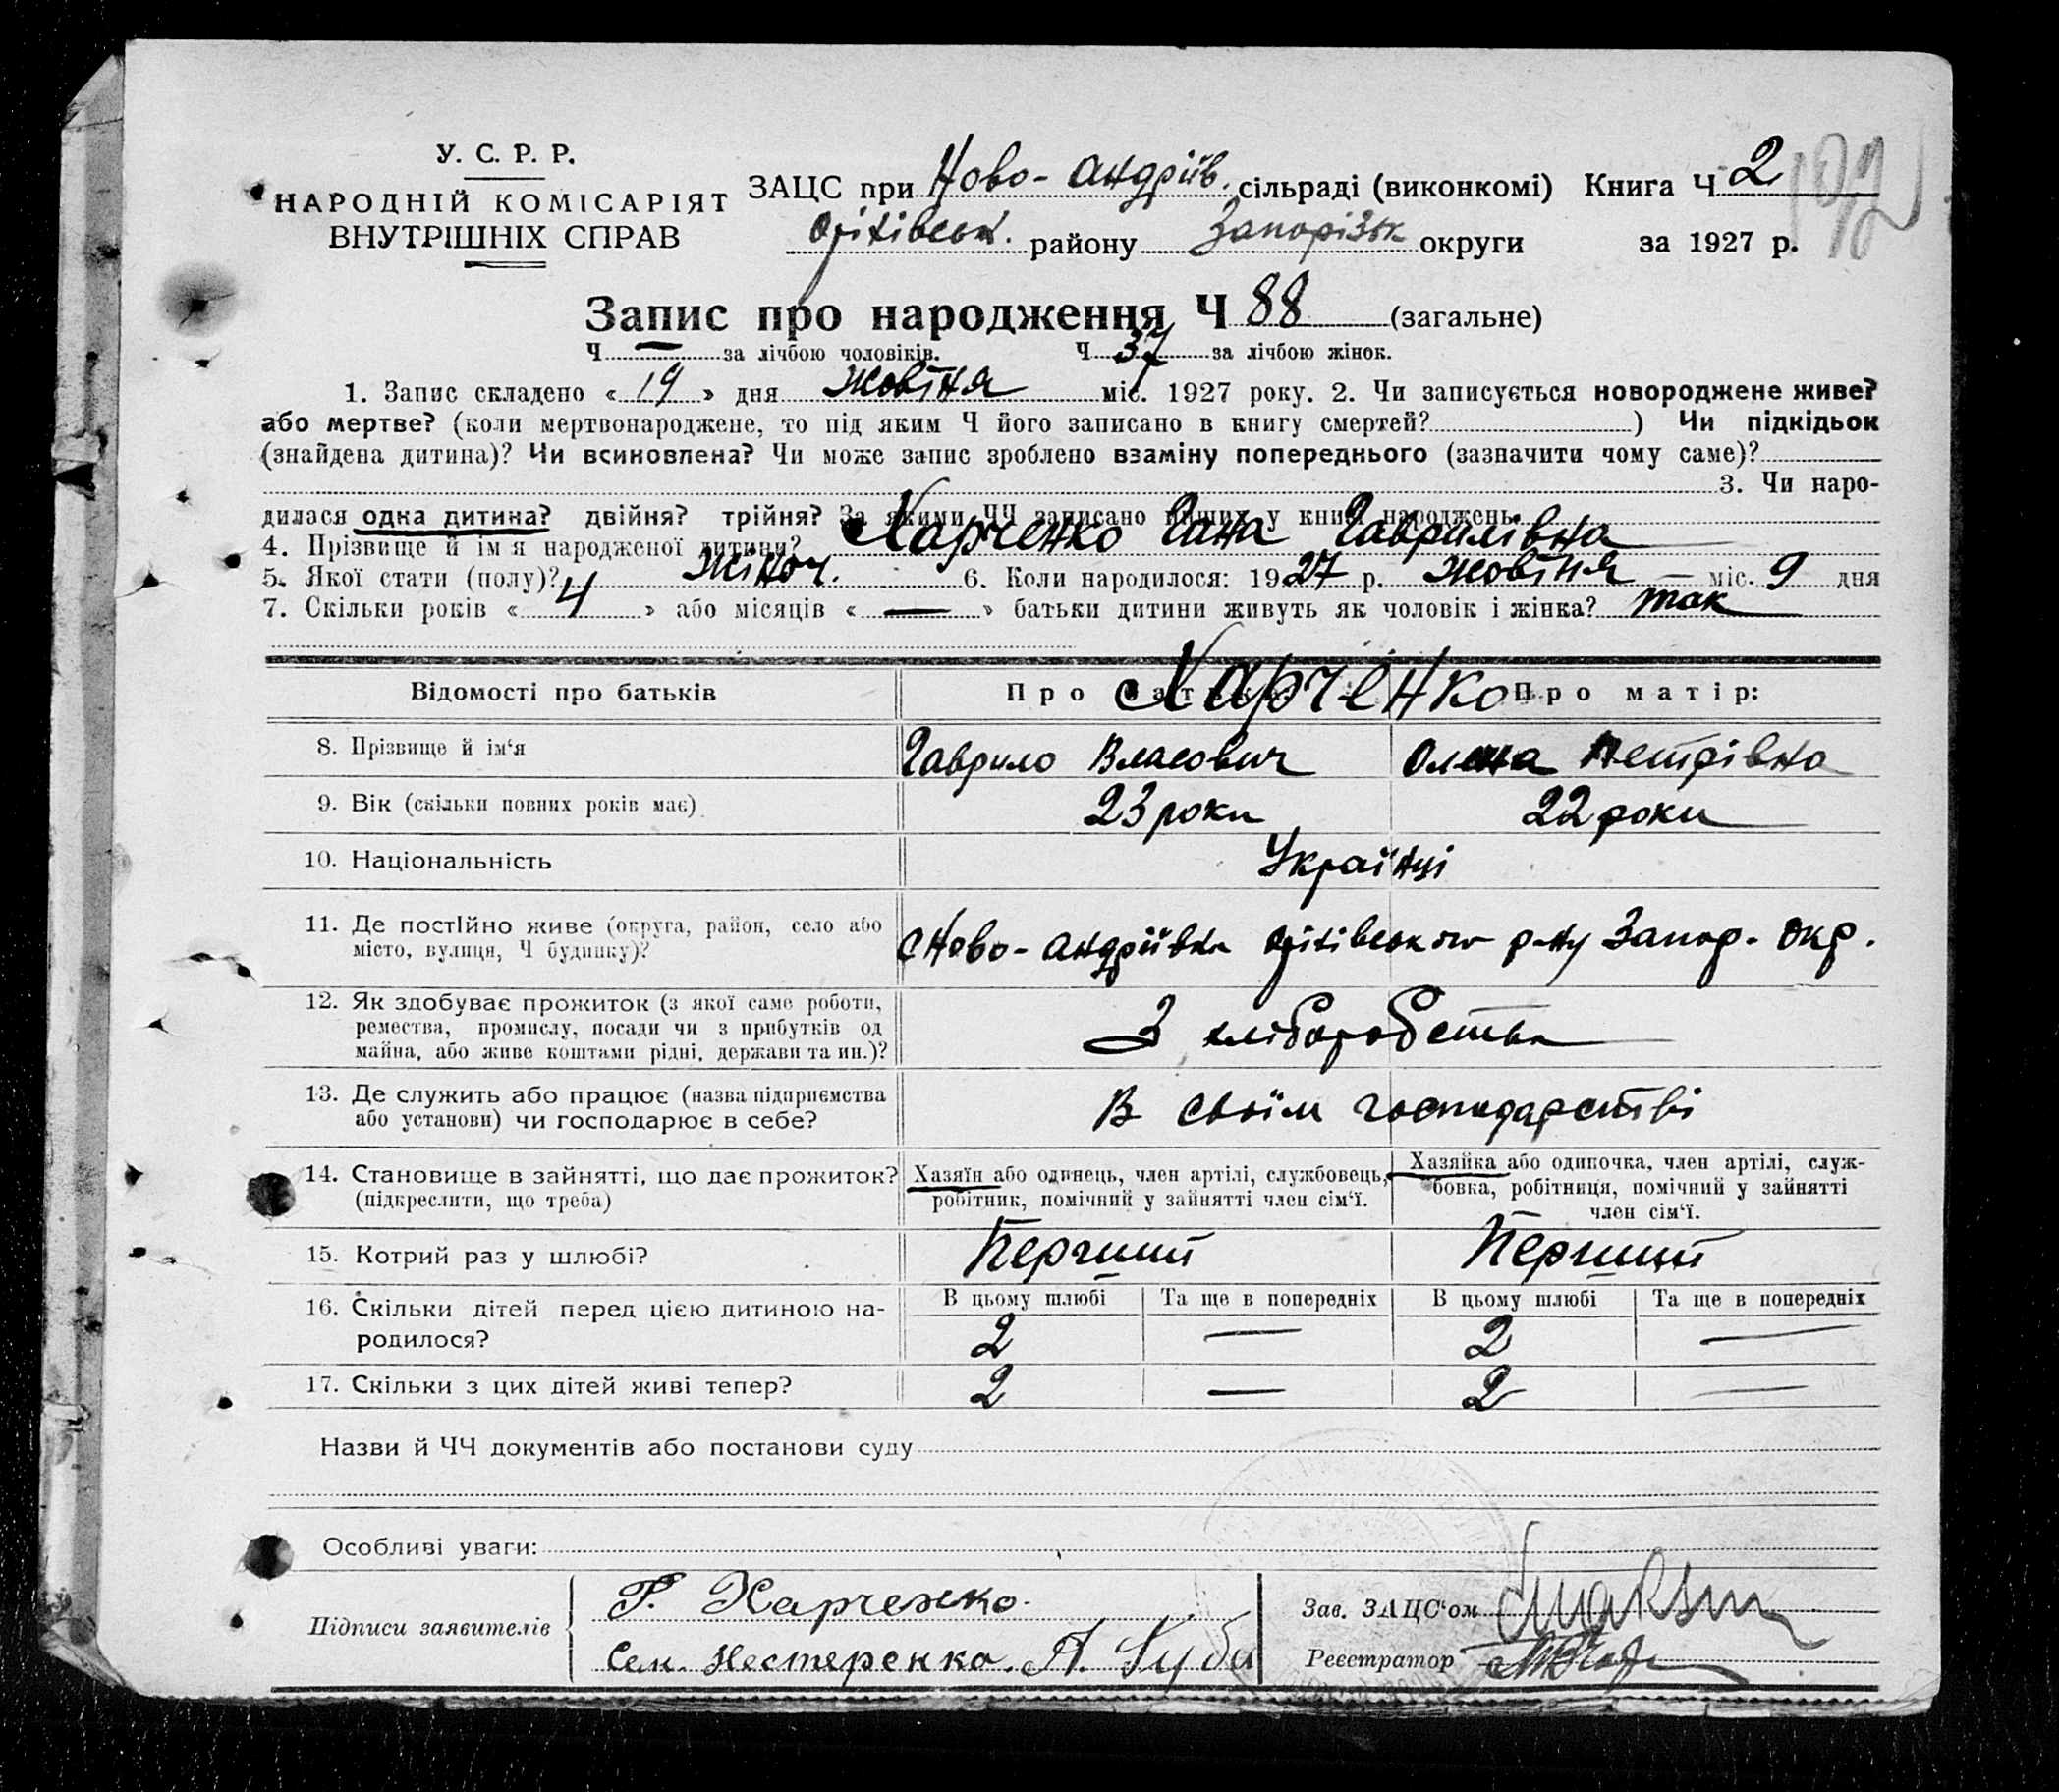 У. С. Р. Р.
НАРОДНІЙ КОМІСАРІЯТ
ВНУТРІШНІХ СПРАВ
ЗАЦС при Ново-Андріїв. сільраді (виконкомі) Книга Ч 2
Оріхівськ. району Запорізьк округи за 1927 р.
Запис про народження Ч 88 (загальне)
Ч — за лічбою чоловіків. Ч 37 за лічбою жінок.
1. Запис складено « 19 » дня жовтня міс. 1927 року. 2. Чи записується новороджене живе?
або мертве? (коли мертвонароджене, то під яким Ч його записано в книгу смертей? ) Чи підкідьок
(знайдена дитина)? Чи всиновлена? Чи може запис зроблено взаміну попереднього (зазначити чому саме)?
3. Чи наро-
дилася одна дитина? двійня? трійня? За якими ЧЧ записано инших у книзі народжень
4. Прізвище й ім'я народженої дитини? Харченко Гана Гаврилівна
5. Якої стати (полу)? жіноч. 6. Коли народилося: 1927 р. жовтня — міс. 9 дня
7. Скільки років « 4 » або місяців « — » батьки дитини живуть як чоловік і жінка? так
Відомості про батьків Про батька: Про матір:
Харченко
8. Прізвище й ім'я Гаврило Власович Олена Петрівна
9. Вік (скільки повних років має) 23 роки 22 роки
10. Національність Українці
11. Де постійно живе (округа, район, село або
місто, вулиця, Ч будинку)?
с Ново-Андріївка Оріхівського р-ну Запор. окр.
12. Як здобуває прожиток (з якої саме роботи,
ремества, промислу, посади чи з прибутків од
майна, або живе коштами рідні, держави та ин.)?
З хліборобства
13. Де служить або працює (назва підприємства
або установи) чи господарює в себе?
В своїм господарстві
14. Становище в зайнятті, що дає прожиток?
(підкреслити, що треба)
Хазяїн або одинець, член артілі, службовець,
робітник, помічний у зайнятті член сім'ї.
Хазяйка або одиночка, член артілі, служ-
бовка, робітниця, помічний у зайнятті
член сім'ї.
15. Котрий раз у шлюбі? Перший Перший
16. Скільки дітей перед цією дитиною на-
родилося?
В цьому шлюбі Та ще в попередніх В цьому шлюбі Та ще в попередніх
2 — 2 —
17. Скільки з цих дітей живі тепер? 2 — 2 —
Назви й ЧЧ документів або постанови суду
Особливі уваги:
Підписи заявителів
Г. Харченко.
Сем. Нестеренко. А. Губа
Зав. ЗАЦС'ом
Реєстратор